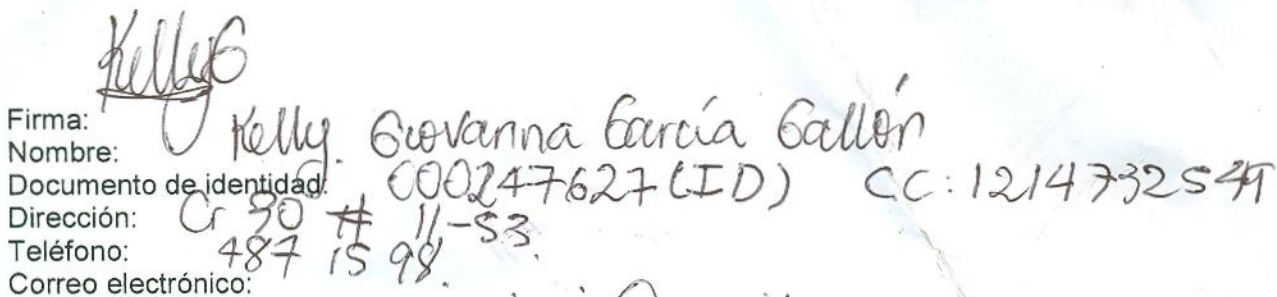 KellyG
Firma:
Nombre: Kelly. Giovanna García Gallón
Documento de identidad: 000247627 (ID) CC: 1214732549
Dirección: Cr 30 # 11-53.
Teléfono: 487 15 98.
Correo electrónico: